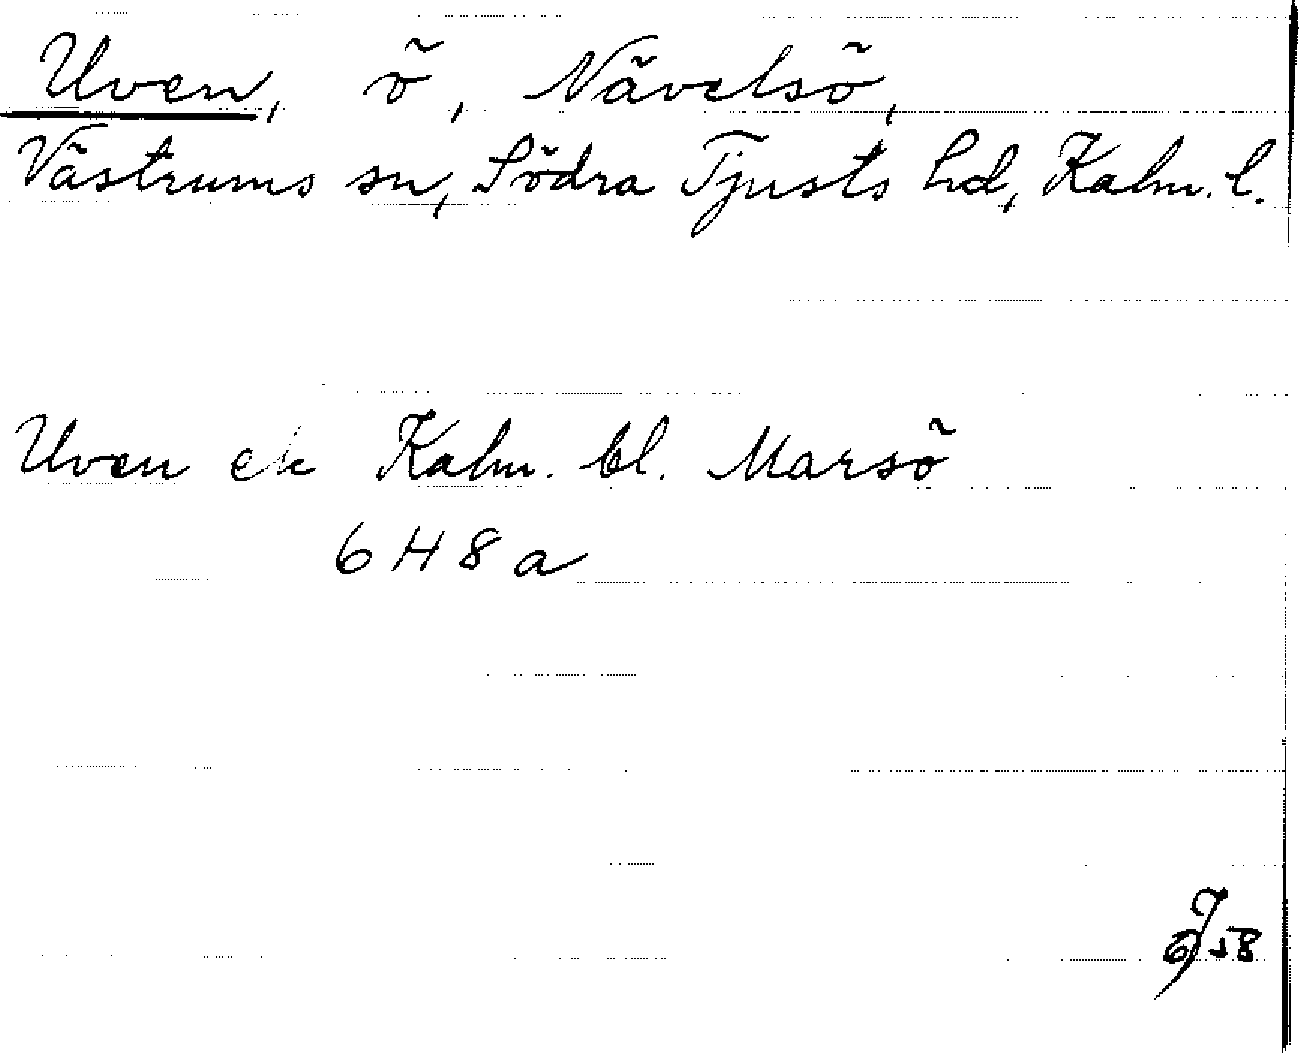 Uven, ö, Nävelsö,
Västrums sn, Södra Tjusts hd, Kalm. l.
Uven ek Kalm. bl. Marsö
6 H 8 a
58